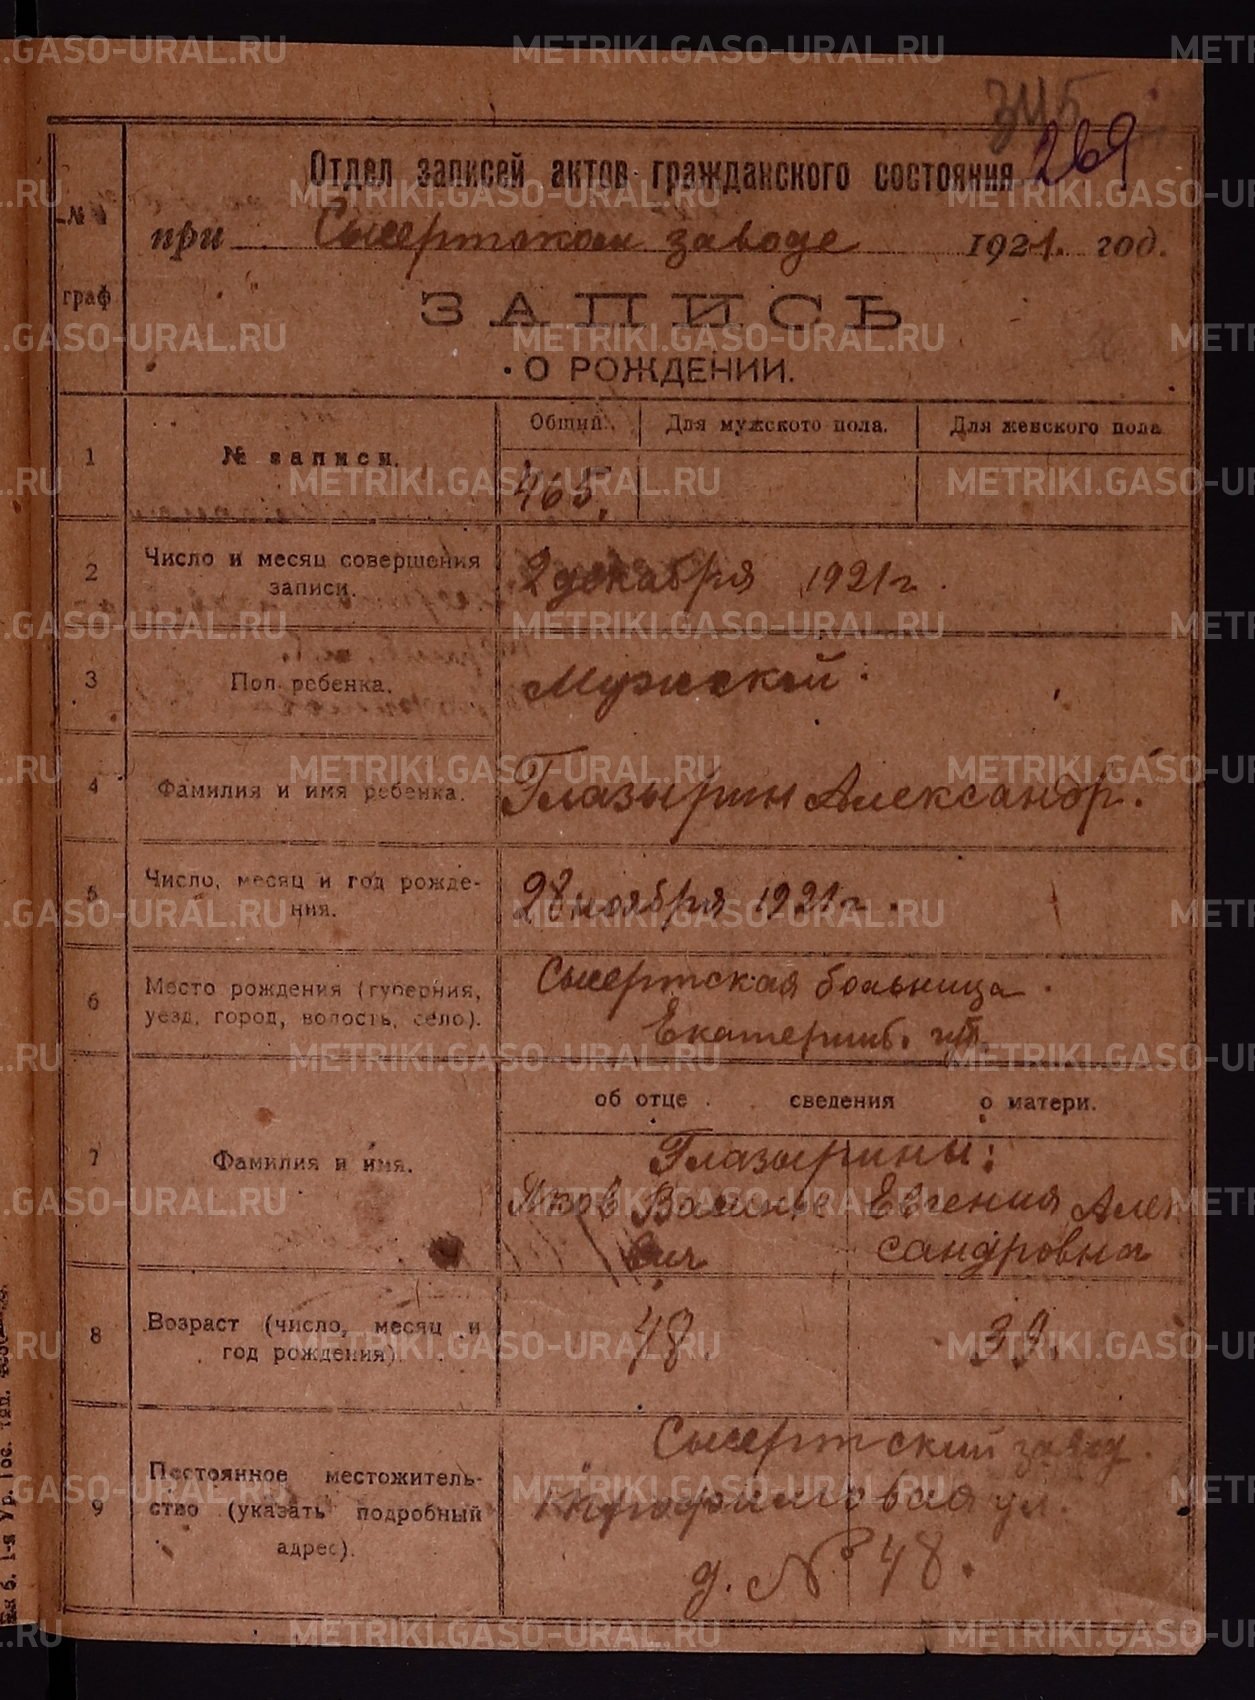 METRIKI.GASO-URAL.RU
345
269
Отдел записей актов гражданского состояния
при Сысертском заводе 1921. год.
№
граф
ЗАПИСЬ
О РОЖДЕНИИ.
1 № записи. Общий. Для мужского пола. Для женского пола
465.
2 Число и месяц совершения записи. 2 декабря 1921 г.
3 Пол ребенка. Мужской.
4 Фамилия и имя ребенка. Глазырин Александр.
5 Число, месяц и год рожде-
ния. 28 ноября 1921 г.
6 Место рождения (губерния, Сысертская больница.
уезд, город, волость, село). Екатеринб.
об отце сведения о матери.
7 Фамилия и имя. Глазырины:
Яков Василье Евгения Алек
вич сандровна
8 Возраст (число, месяц и 48. 33.
год рождения).
Сысертский завод.
9 Постоянное местожитель-
ство (указать подробный ул.
адрес). д. № 48.